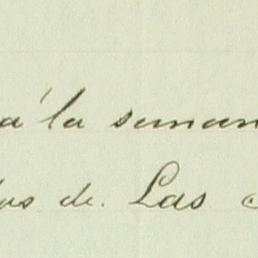 á la seman
de. Las